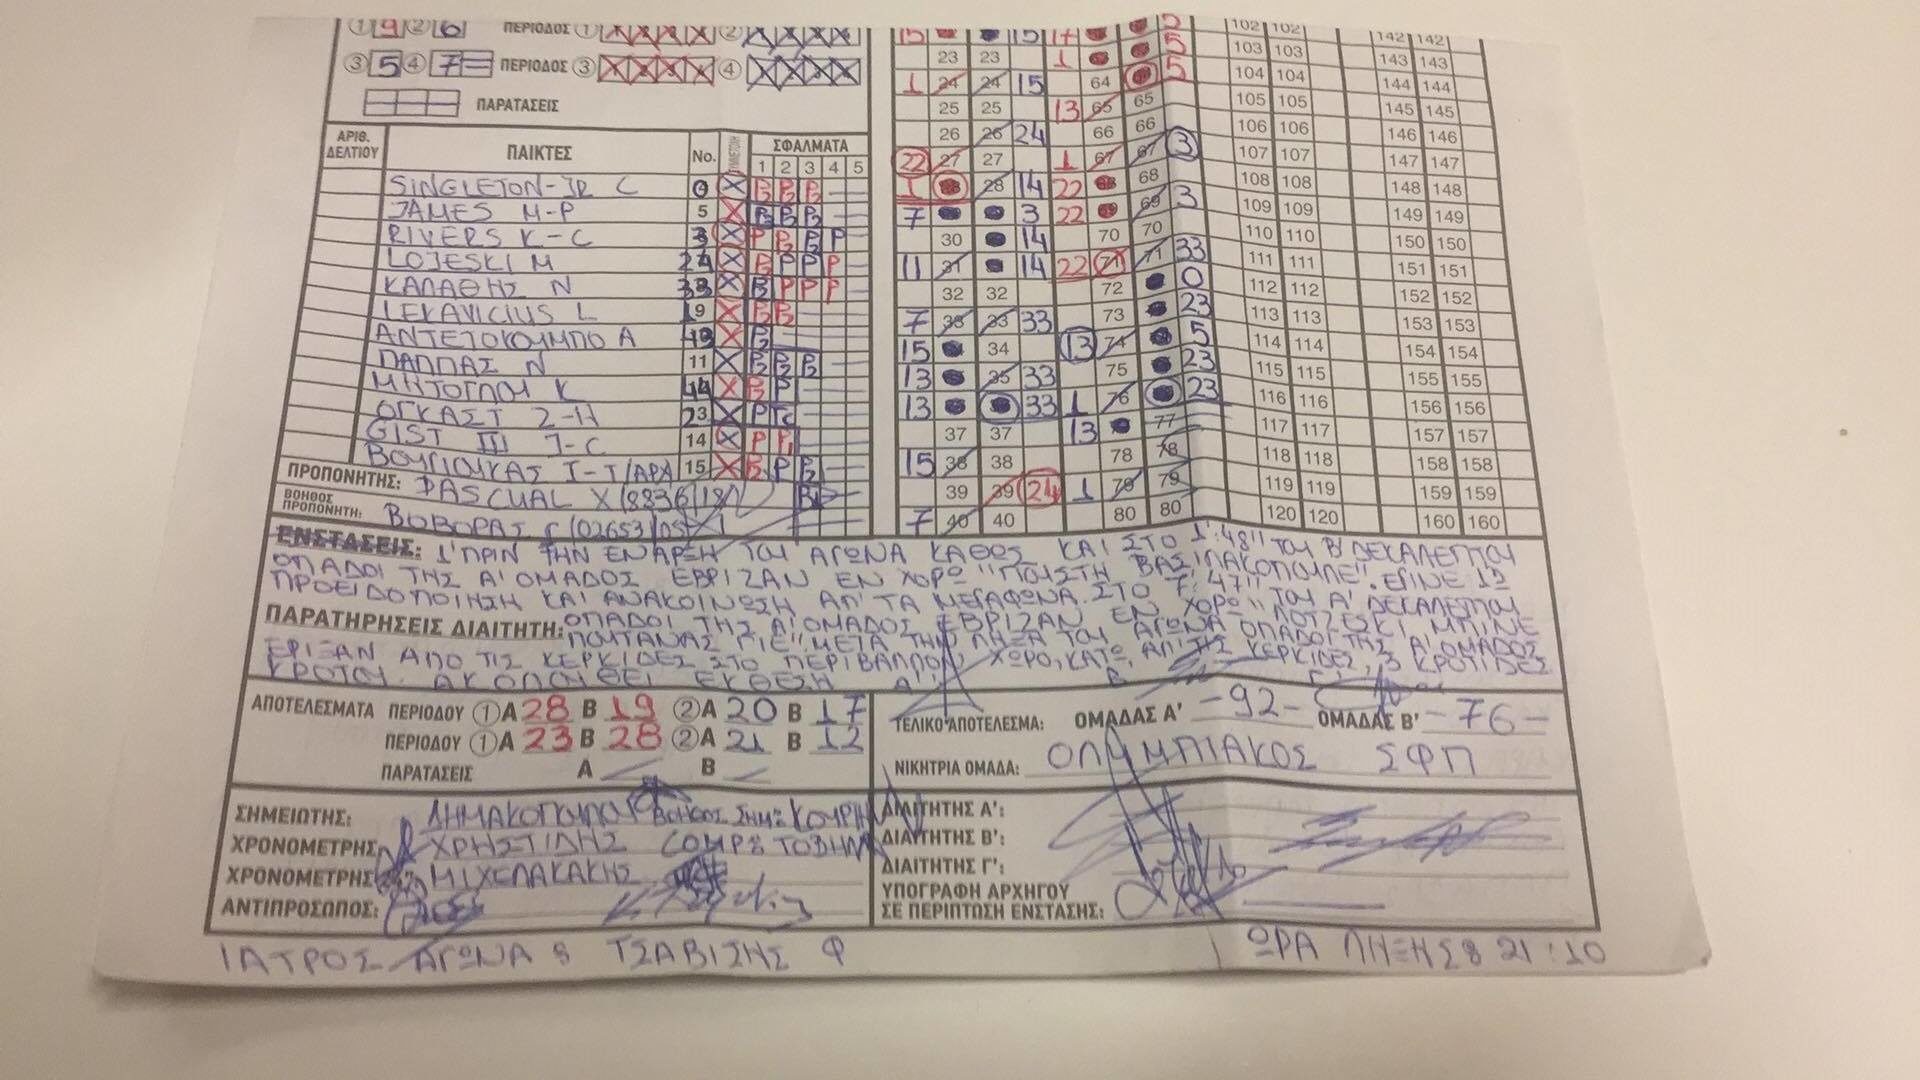 ① 9 ② 6 ΠΕΡΙΟΔΟΣ ① ②
③ 5 ④ 7 ΠΕΡΙΟΔΟΣ ③ ④
ΠΑΡΑΤΑΣΕΙΣ
ΑΡΙΘ. ΔΕΛΤΙΟΥ ΠΑΙΚΤΕΣ No. ΣΦΑΛΜΑΤΑ
1 2 3 4 5
SINGLETON-JR C 0 P2 P2 P2
JAMES M-P 5 P2 P2 P2
RIVERS K-C 3 P P2 P2 P
LOJESKI M 24 P2 P P P
ΚΑΛΑΘΗΣ Ν 33 P2 P P P
LEKAVICIUS L 19 P2 P2
ΑΝΤΕΤΟΚΟΥΜΠΟ Α P2
ΠΑΠΠΑΣ Ν 11 P2 P2 P2
ΜΗΤΟΓΛΟΥ Κ 44 P2 P
ΟΓΚΑΣΤ Ζ-Η 23 P
GIST III J-C 14 P P1
ΒΟΥΓΙΟΥΚΑΣ Ι-Τ (ΑΡΧ) 15 P2 P P2
ΠΡΟΠΟΝΗΤΗΣ: PASCUAL X (8336/18)
ΒΟΗΘΟΣ ΠΡΟΠΟΝΗΤΗ: ΒΟΒΟΡΑΣ (02653/05)
15 15 17 5
23 23 1 5 103 103 143 143
1 24 24 15 64 5 104 104 144 144
25 25 13 65 65 105 105 145 145
26 26 24 66 66 106 106 146 146
22 27 27 1 67 67 3 107 107 147 147
1 28 14 22 68 108 108 148 148
7 3 22 69 3 109 109 149 149
30 14 70 70 110 110 150 150
11 31 14 22 71 71 33 111 111 151 151
32 32 72 0 112 112 152 152
7 33 33 33 73 23 113 113 153 153
15 34 13 74 5 114 114 154 154
13 35 33 75 23 115 115 155 155
13 33 1 76 23 116 116 156 156
37 37 13 77 117 117 157 157
15 38 38 78 78 118 118 158 158
39 39 24 1 79 79 119 119 159 159
7 40 40 80 80 120 120 160 160
ΕΝΣΤΑΣΕΙΣ: 1' ΠΡΙΝ ΤΗΝ ΕΝΑΡΞΗ ΤΟΥ ΑΓΩΝΑ ΚΑΘΩΣ ΚΑΙ ΣΤΟ 1':48'' ΤΟΥ Β' ΔΕΚΑΛΕΠΤΟΥ
ΟΠΑΔΟΙ ΤΗΣ Α' ΟΜΑΔΟΣ ΕΒΡΙΖΑΝ ΕΝ ΧΟΡΩ "ΠΟΥΣΤΗ ΒΑΣΙΛΑΚΟΠΟΥΛΕ". ΕΓΙΝΕ 1η
ΠΡΟΕΙΔΟΠΟΙΗΣΗ ΚΑΙ ΑΝΑΚΟΙΝΩΣΗ ΑΠ' ΤΑ ΜΕΓΑΦΩΝΑ. ΣΤΟ 7':47'' ΤΟΥ Α' ΔΕΚΑΛΕΠΤΟΥ
ΠΑΡΑΤΗΡΗΣΕΙΣ ΔΙΑΙΤΗΤΗ: ΟΠΑΔΟΙ ΤΗΣ Α' ΟΜΑΔΟΣ ΕΒΡΙΖΑΝ ΕΝ ΧΟΡΩ "ΛΟΤΖΕΣΚΙ ΜΠΙΝΕ
ΠΟΥΤΑΝΑΣ ΓΙΕ". ΜΕΤΑ ΤΗΝ ΛΗΞΗ ΤΟΥ ΑΓΩΝΑ ΟΠΑΔΟΙ ΤΗΣ Α' ΟΜΑΔΟΣ
ΕΡΙΞΑΝ ΑΠΟ ΤΙΣ ΚΕΡΚΙΔΕΣ ΣΤΟ ΠΕΡΙΒΑΛΛΟΝ ΧΩΡΟ, ΚΑΤΩ ΑΠ' ΤΙΣ ΚΕΡΚΙΔΕΣ, 3 ΚΡΟΤΙΔΕΣ
ΚΡΟΤΟΥ. ΑΚΟΛΟΥΘΕΙ ΕΚΘΕΣΗ Α' Β' Γ'
ΑΠΟΤΕΛΕΣΜΑΤΑ ΠΕΡΙΟΔΟΥ ① Α 28 Β 19 ② Α 20 Β 17
ΠΕΡΙΟΔΟΥ ① Α 23 Β 28 ② Α 21 Β 12
ΠΑΡΑΤΑΣΕΙΣ Α Β
ΤΕΛΙΚΟ ΑΠΟΤΕΛΕΣΜΑ: ΟΜΑΔΑΣ Α' -92- ΟΜΑΔΑΣ Β' -76-
ΝΙΚΗΤΡΙΑ ΟΜΑΔΑ: ΟΛΥΜΠΙΑΚΟΣ ΣΦΠ
ΣΗΜΕΙΩΤΗΣ: ΔΗΜΑΚΟΠΟΥΛΟΥ ΒΟΗΘΟΣ ΣΗΜ:
ΧΡΟΝΟΜΕΤΡΗΣ ΧΡΗΣΤΙΔΗΣ COMP:
ΧΡΟΝΟΜΕΤΡΗΣ ΜΙΧΕΛΑΚΑΚΗΣ
ΑΝΤΙΠΡΟΣΩΠΟΣ:
ΔΙΑΙΤΗΤΗΣ Α':
ΔΙΑΙΤΗΤΗΣ Β':
ΔΙΑΙΤΗΤΗΣ Γ':
ΥΠΟΓΡΑΦΗ ΑΡΧΗΓΟΥ
ΣΕ ΠΕΡΙΠΤΩΣΗ ΕΝΣΤΑΣΗΣ:
ΙΑΤΡΟΣ ΑΓΩΝΑ: ΤΣΑΒΙΣΗΣ Φ
ΩΡΑ ΛΗΞΗΣ: 21:10